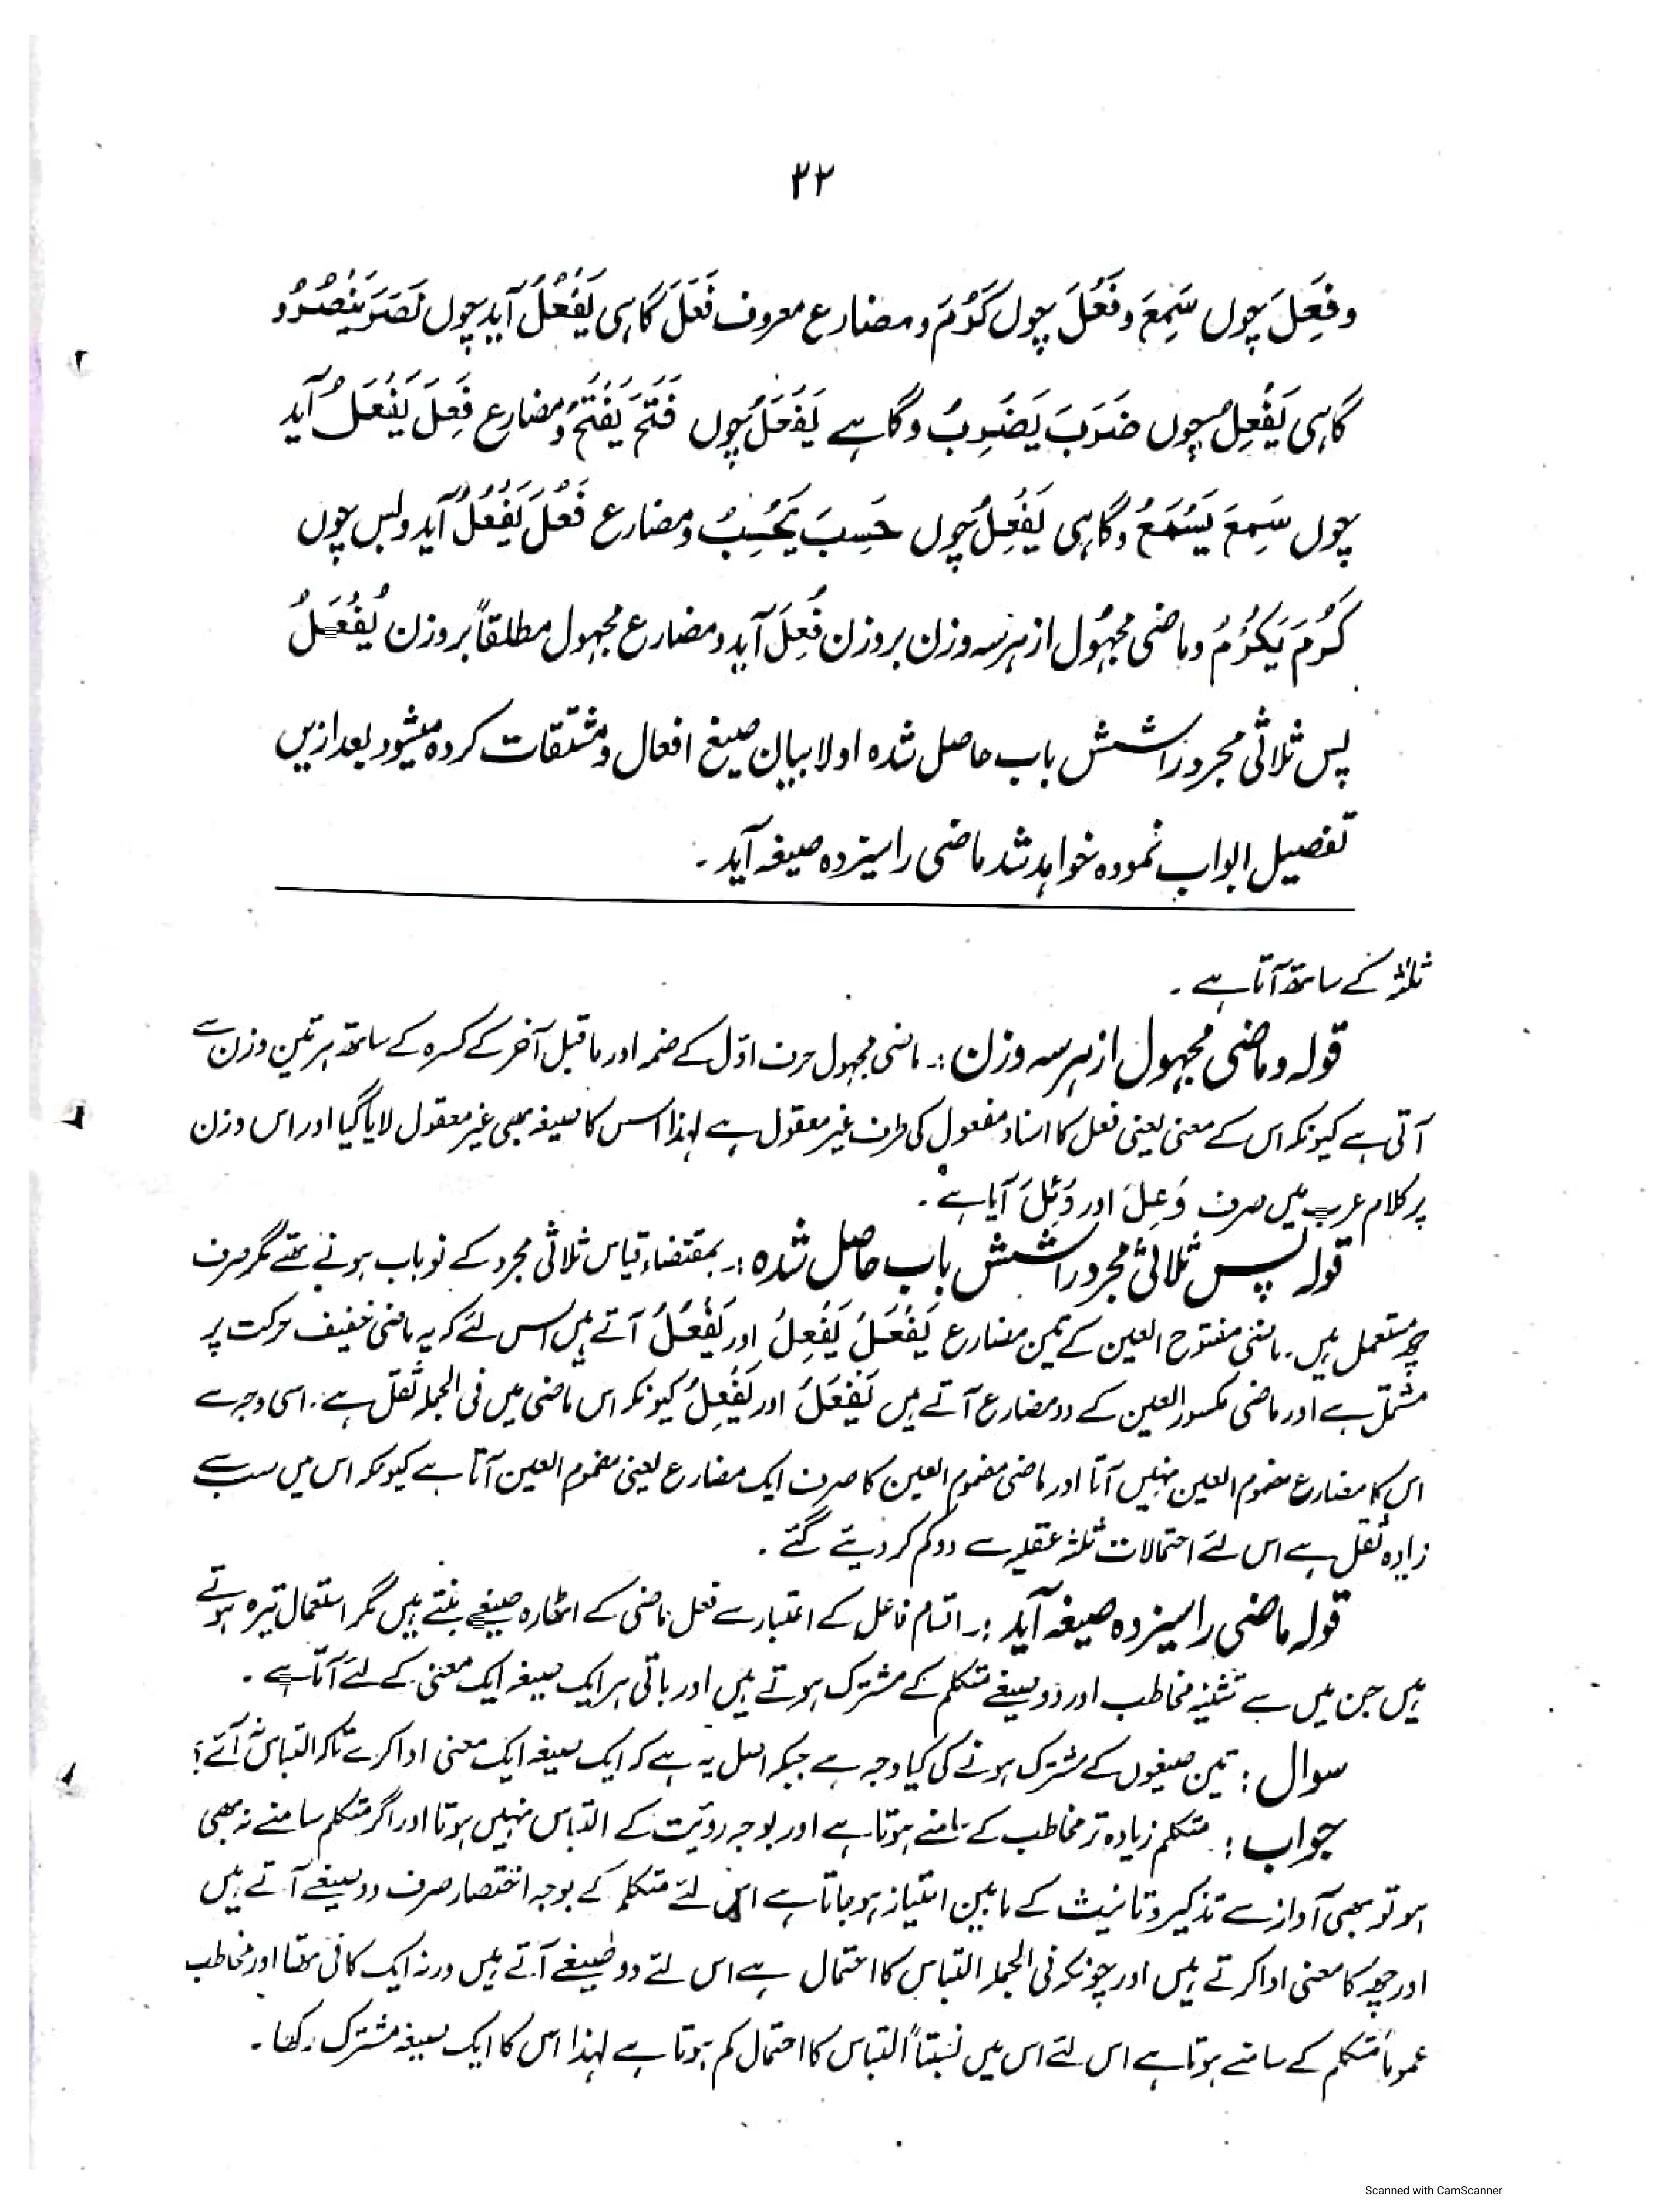 ۳۲
وفَعِلَ چوں سَمِعَ وفَعُلَ چوں كَرُمَ ومضارع معروف فَعَلَ گاہی يَفْعُلُ آید چوں نَصَرَ يَنْصُرُ و
گاہی يَفْعِلُ چوں ضَرَبَ يَضْرِبُ وگاہے يَفْعَلُ چوں فَتَحَ يَفْتَحُ ومضارع فَعِلَ يَفْعَلُ آید
چوں سَمِعَ يَسْمَعُ وگاہی يَفْعِلُ چوں حَسِبَ يَحْسِبُ ومضارع فَعُلَ يَفْعُلُ آید وبس چوں
كَرُمَ يَكْرُمُ وماضی مجہُول از ہرسہ وزن بروزن فُعِلَ آید ومضارع مجہول مطلقاً بروزن يُفْعَلُ
پس ثلاثی مجرد را شش باب حاصل شدہ اولا بیان صیغ افعال ومشتقات کردہ میشود بعد ازیں
تفصیل ابواب نمودہ خواہد شد ماضی را سیزدہ صیغہ آید ۔
ثلثہ کے ساتھ آتا ہے ۔
قولہ وماضی مجہول از ہرسہ وزن :۔ ماضی مجہول حرف اوّل کے ضمہ اور ماقبل آخر کے کسرہ کے ساتھ ہر تین وزن سے
آتی ہے کیونکہ اس کے معنی یعنی فعل کا اسناد مفعول کی طرف غیر معقول ہے لہذا اُس کا صیغہ بھی غیر معقول لایا گیا اور اس وزن
پر کلام عرب میں صرف وُعِلَ اور دُئِلَ آیا ہے ۔
قولہ پس ثلاثی مجرد را شش باب حاصل شدہ :۔ بمقتضاء قیاس ثلاثی مجرد کے نو باب ہونے تھے مگر صرف
چھ مستعمل ہیں ۔ ماضی مفتوح العین کے تین مضارع يَفْعَلُ يَفْعِلُ اور يَفْعُلُ آتے ہیں اس لئے کہ یہ ماضی خفیف حرکت پر
مشتمل ہے اور ماضی مکسور العین کے دو مضارع آتے ہیں يَفْعَلُ اور يَفْعِلُ کیونکہ اس ماضی میں فی الجملہ ثقل ہے ۔ اسی وجہ سے
اس کا مضارع مضموم العین نہیں آتا اور ماضی مضموم العین کا صرف ایک مضارع یعنی مضموم العین آتا ہے کیونکہ اس میں سب سے
زیادہ ثقل ہے اس لئے احتمالات ثلثہ عقلیہ سے دو کم کر دیئے گئے ۔
قولہ ماضی را سیزدہ صیغہ آید :۔ اقسام فاعل کے اعتبار سے فعل ماضی کے اٹھارہ صیغے بنتے ہیں مگر استعمال تیرہ ہوتے
ہیں جن میں سے تثنیہ مخاطب اور دو صیغے متکلم کے مشترک ہوتے ہیں اور باقی ہر ایک صیغہ ایک معنی کے لئے آتا ہے ۔
سوال : تین صیغوں کے مشترک ہونے کی کیا وجہ ہے جبکہ اصل یہ ہے کہ ایک صیغہ ایک معنی ادا کرے تاکہ التباس نہ آئے؟
جواب : متکلم زیادہ تر مخاطب کے سامنے ہوتا ہے اور بوجہ رویٔت کے التباس نہیں ہوتا اور اگر متکلم سامنے نہ بھی
ہو تو بھی آواز سے تذکیر و تانیث کے مابین امتیاز ہو جاتا ہے اس لئے متکلم کے بوجہ اختصار صرف دو صیغے آتے ہیں
اور چھ کا معنی ادا کرتے ہیں اور چونکہ فی الجملہ التباس کا احتمال ہے اس لئے دو صیغے آتے ہیں ورنہ ایک کافی تھا اور مخاطب
عموماً متکلم کے سامنے ہوتا ہے اس لئے اس میں نسبتاً التباس کا احتمال کم ہوتا ہے لہذا اس کا ایک صیغہ مشترک رکھا ۔
Scanned with CamScanner